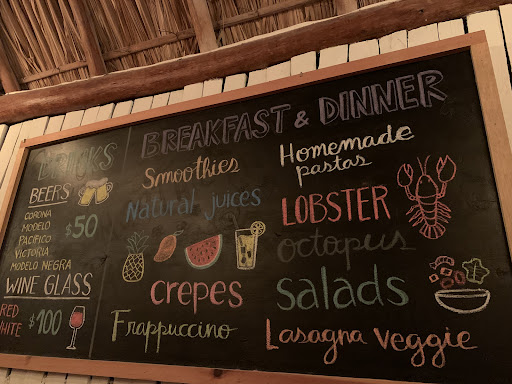 DRINKS
BEERS
CORONA
MODELO
PACIFICO
VICTORIA
MODELO NEGRA
$50
WINE GLASS
RED
WHITE
$100
BREAKFAST & DINNER
Smoothies
Natural juices
crepes
Frappuccino
Homemade
pastas
LOBSTER
octopus
salads
Lasagna veggie